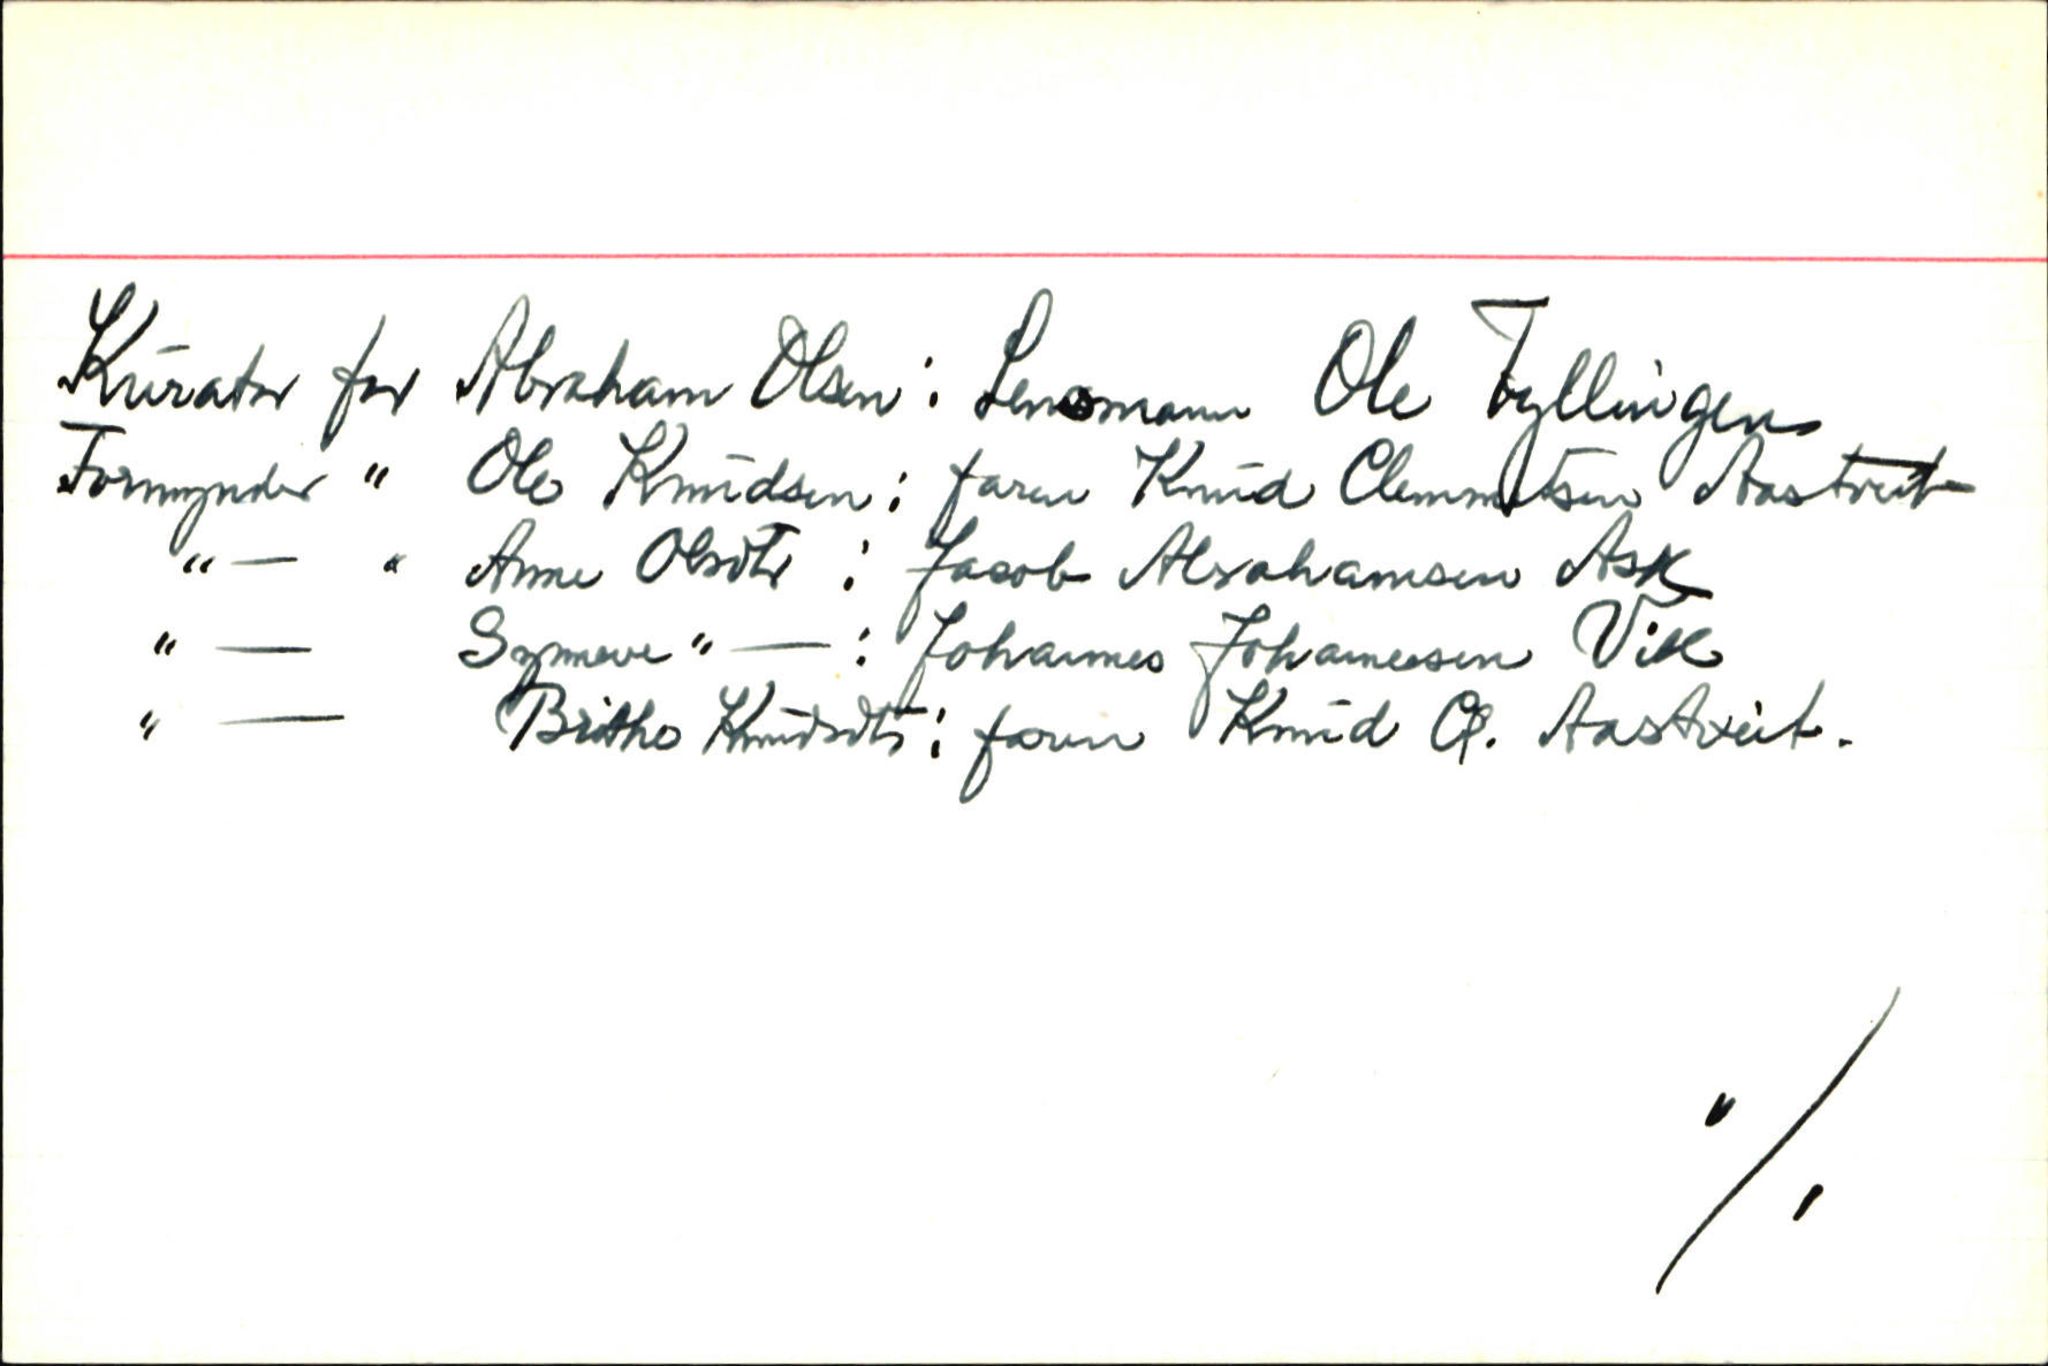 Kurator for Abraham Olsen: Lensmann Ole Fyllingen
Formynder " Ole Knudsen: faren Knud Clemmetsen Aastveit
" — " Anne Olsdtr : Jacob Abrahamsen Ask
" — Synneve " — : Johannes Johannessen Vik
" — Britho Knudsdtr: faren Knud Cl. Aastveit.